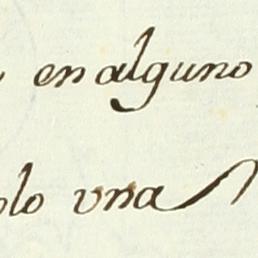 en alguno
olo una